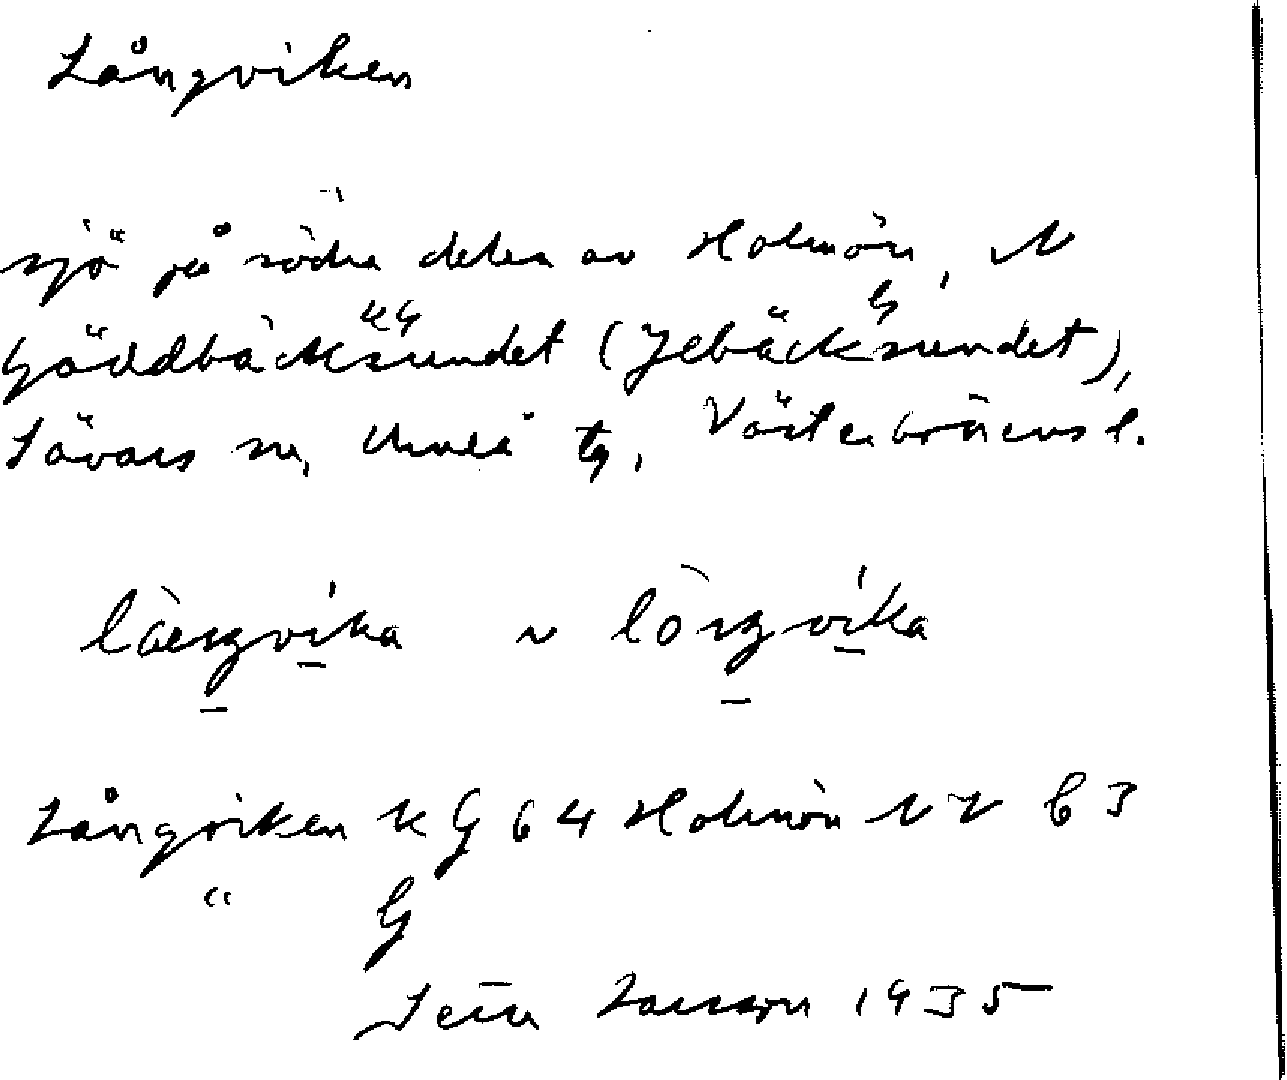 Långviken
sjö på södra delen av Holmön, N
Gäddbäcksundet (Jebäcksundet),
Sävars sn, Umeå tg, Västerbottens l.
låeŋvika ~ lòŋvika
Långviken k G 64 Holmön NV b 3
" G
Larsson 1935